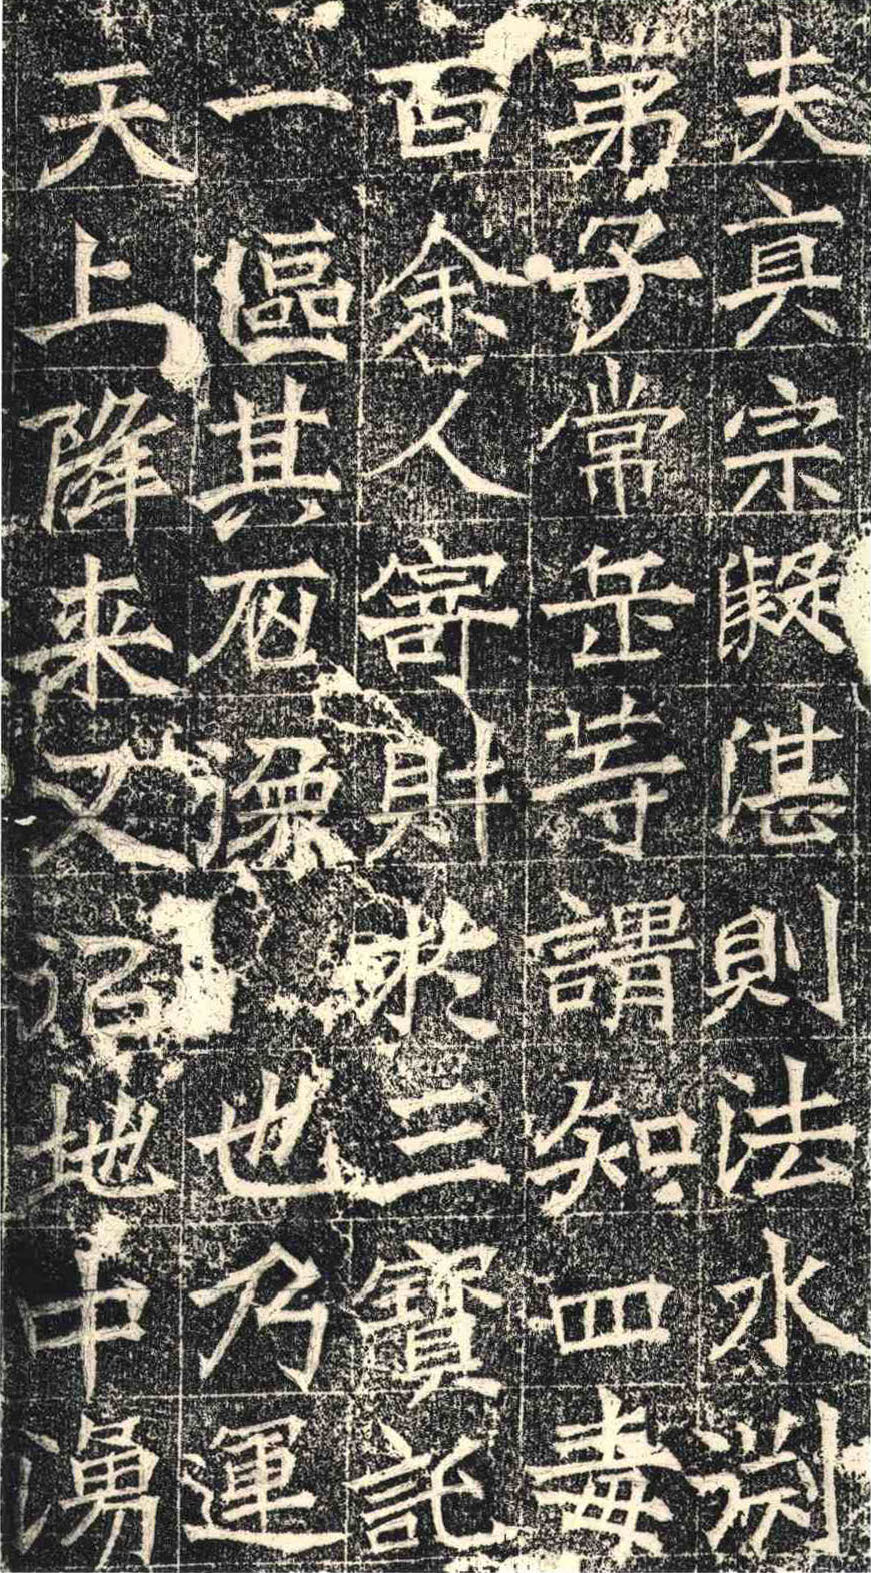 夫真宗凝湛則法水渕
苐子常岳等謂知四毒
百余人寄財於三寶託
一區其像也乃運
天上降来又地中湧